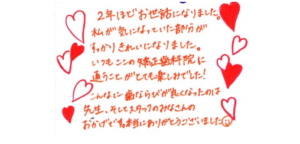 2年ほどお世話になりました。
私が気になっていた部分が
すっかりきれいになりました。
いつもこの矯正歯科院に
通うことがとても楽しみでした!
こんなに歯ならびが良くなったのは
先生、そしてスタッフのみなさんの
おかげです。本当にありがとうございました